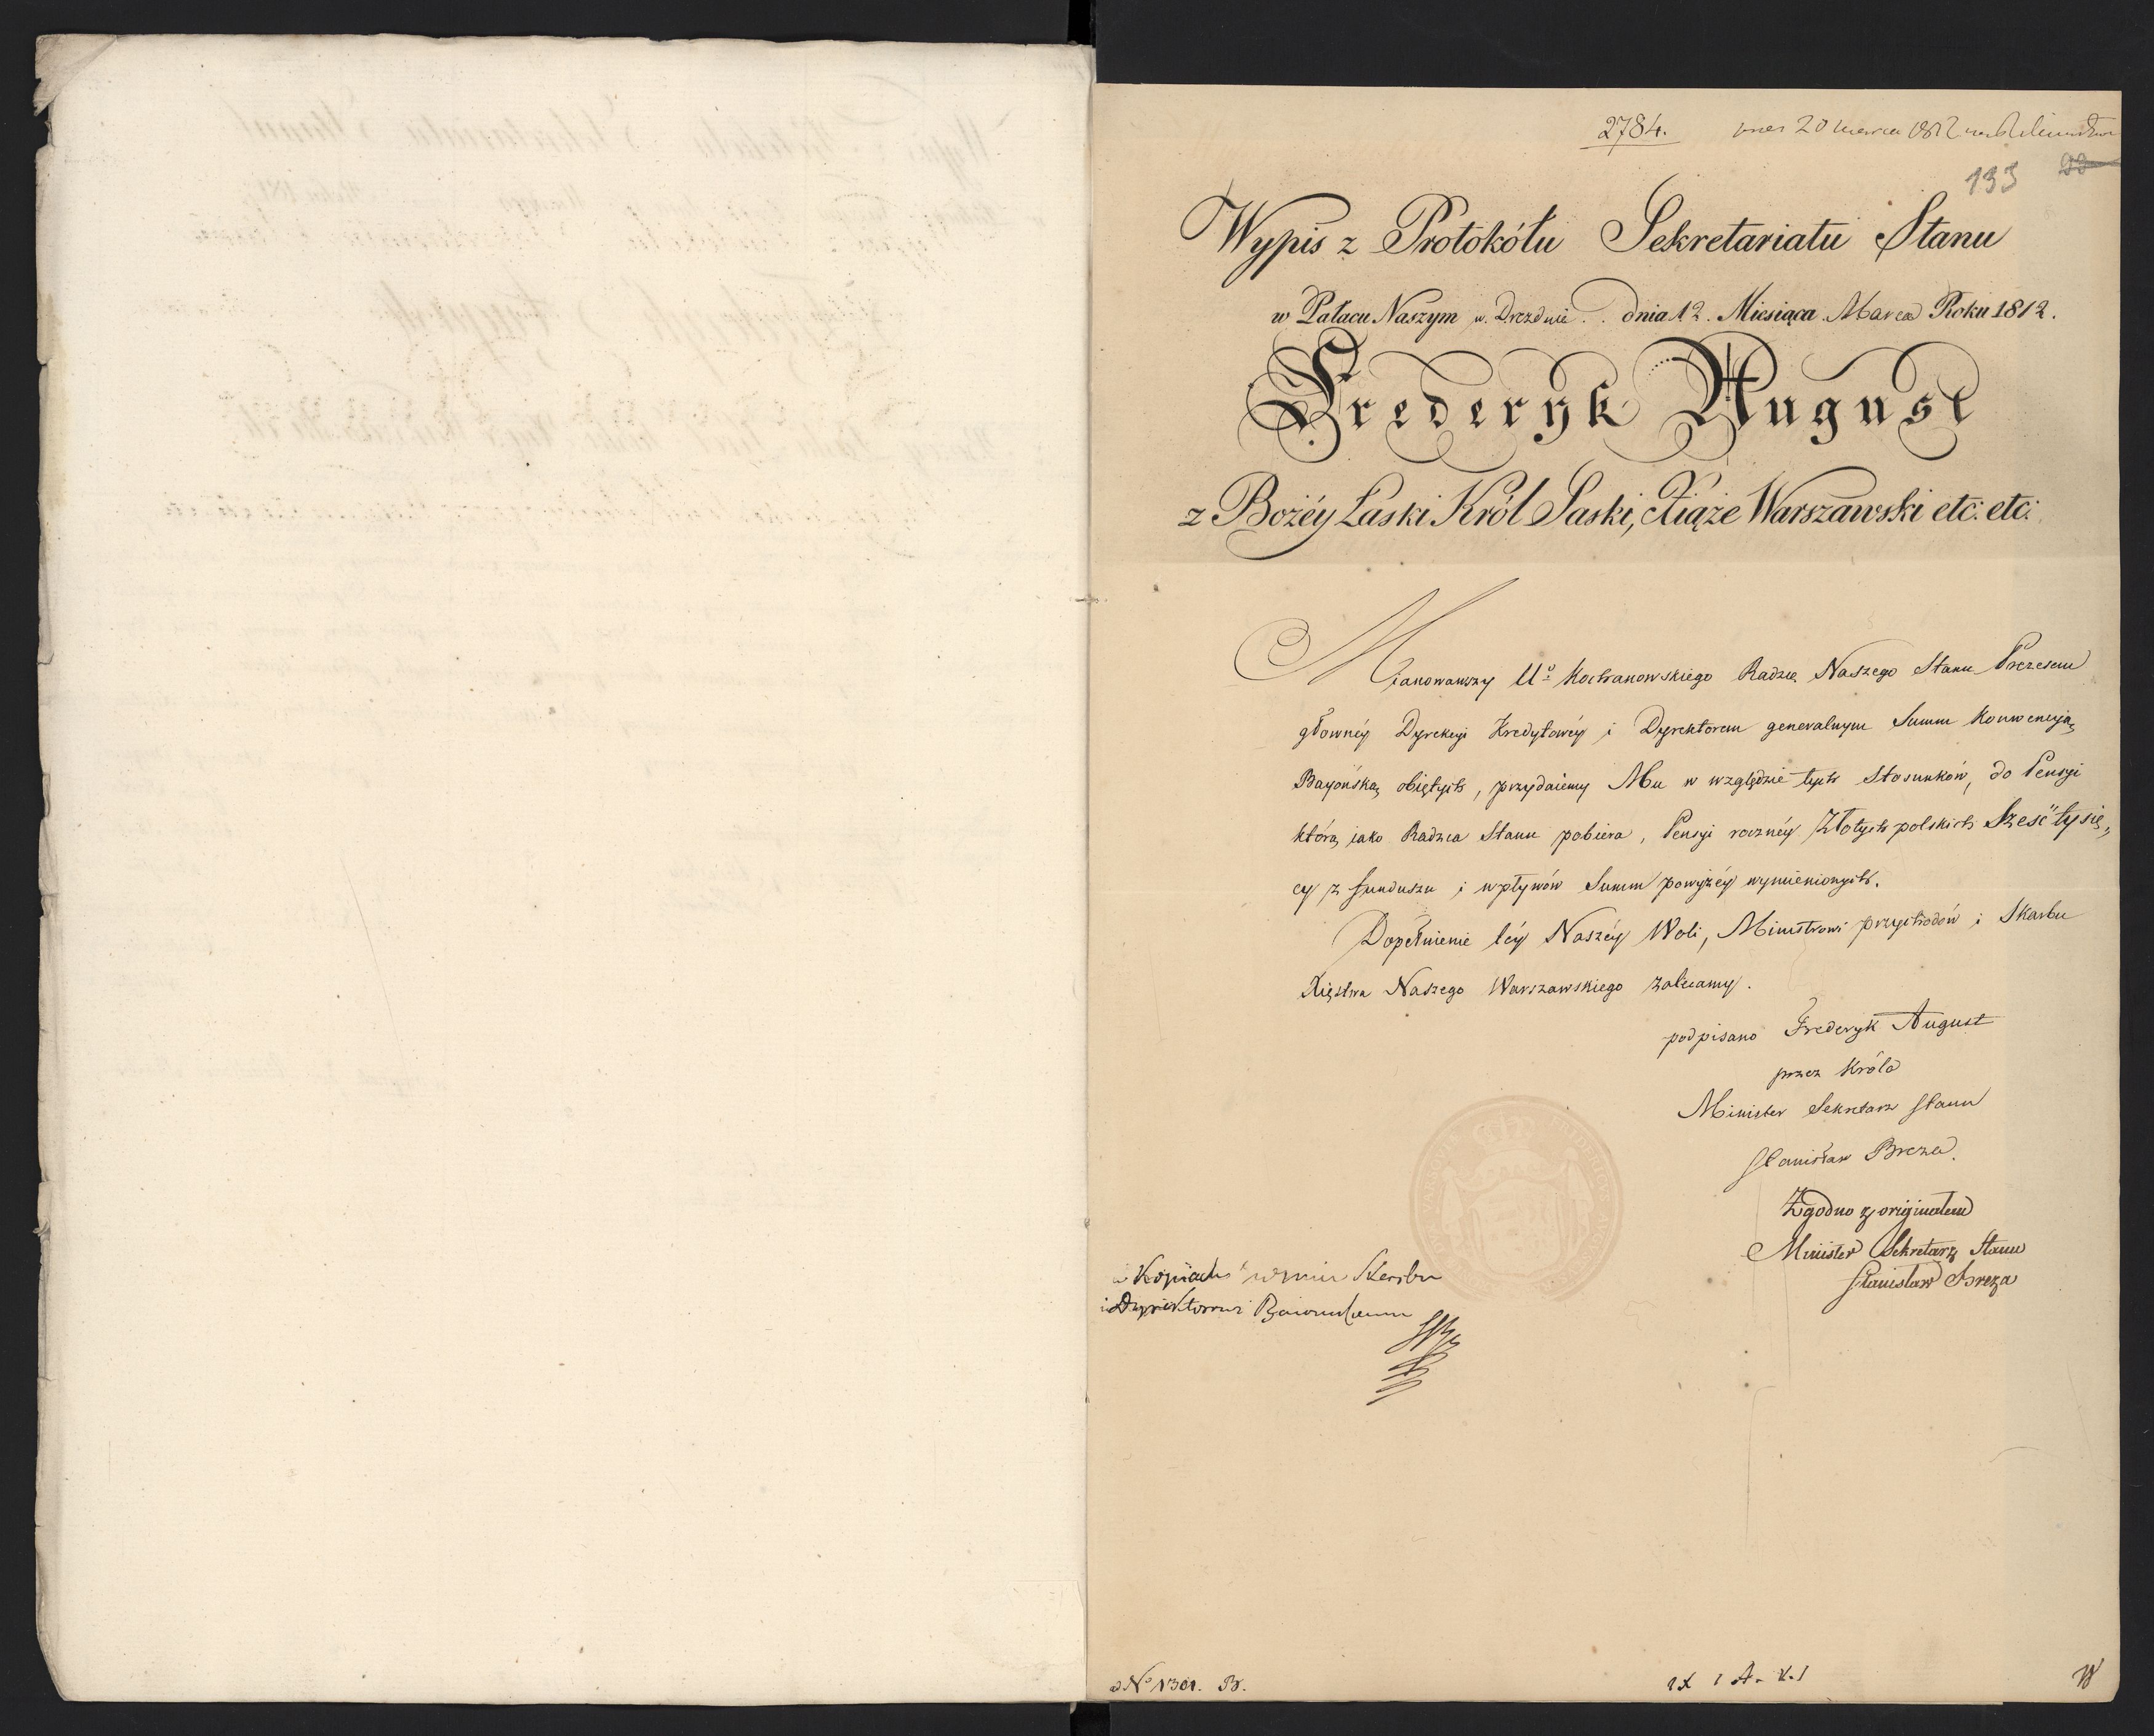 2784.
20 marca 1812
133
Wypis z Protokółu Sekretariatu Stanu
w Pałacu Naszym w Dreźdnie dnia 12. Miesiąca Marca Roku 1812.
Frederyk August
z Bożéy Łaski Król Saski, Xiąże Warszawski etc: etc:
Mianowawszy Uo Kochanowskiego Radzcę Naszego Stanu Prezesem
głownéy Dyrekcyi Kredytowéy i Dyrektorem generalnym Summ Konwencyją
Bayońską obiętych, przydaiemy Mu w względzie tych stosunków, do Pensyi
którą jako Radzca Stanu pobiera, Pensyi roznéy Złotych polskich Sześć tysię„
cy z funduszu i wpływów Summ powyżéy wymienionych.
Dopełnienie téy Naszéy Woli, Ministrowi przychodów i Skarbu
Xięstwa Naszego Warszawskiego zalecamy.
podpisano Frederyk August
przez Króla
Minister Sekretarz Stanu
Stanisław Breza.
Zgodno z originałem
Minister Sekretarz Stanu
Stanisław Breza
w Kopiach Skarbu
i Dyrektorowi
No 1301. B.